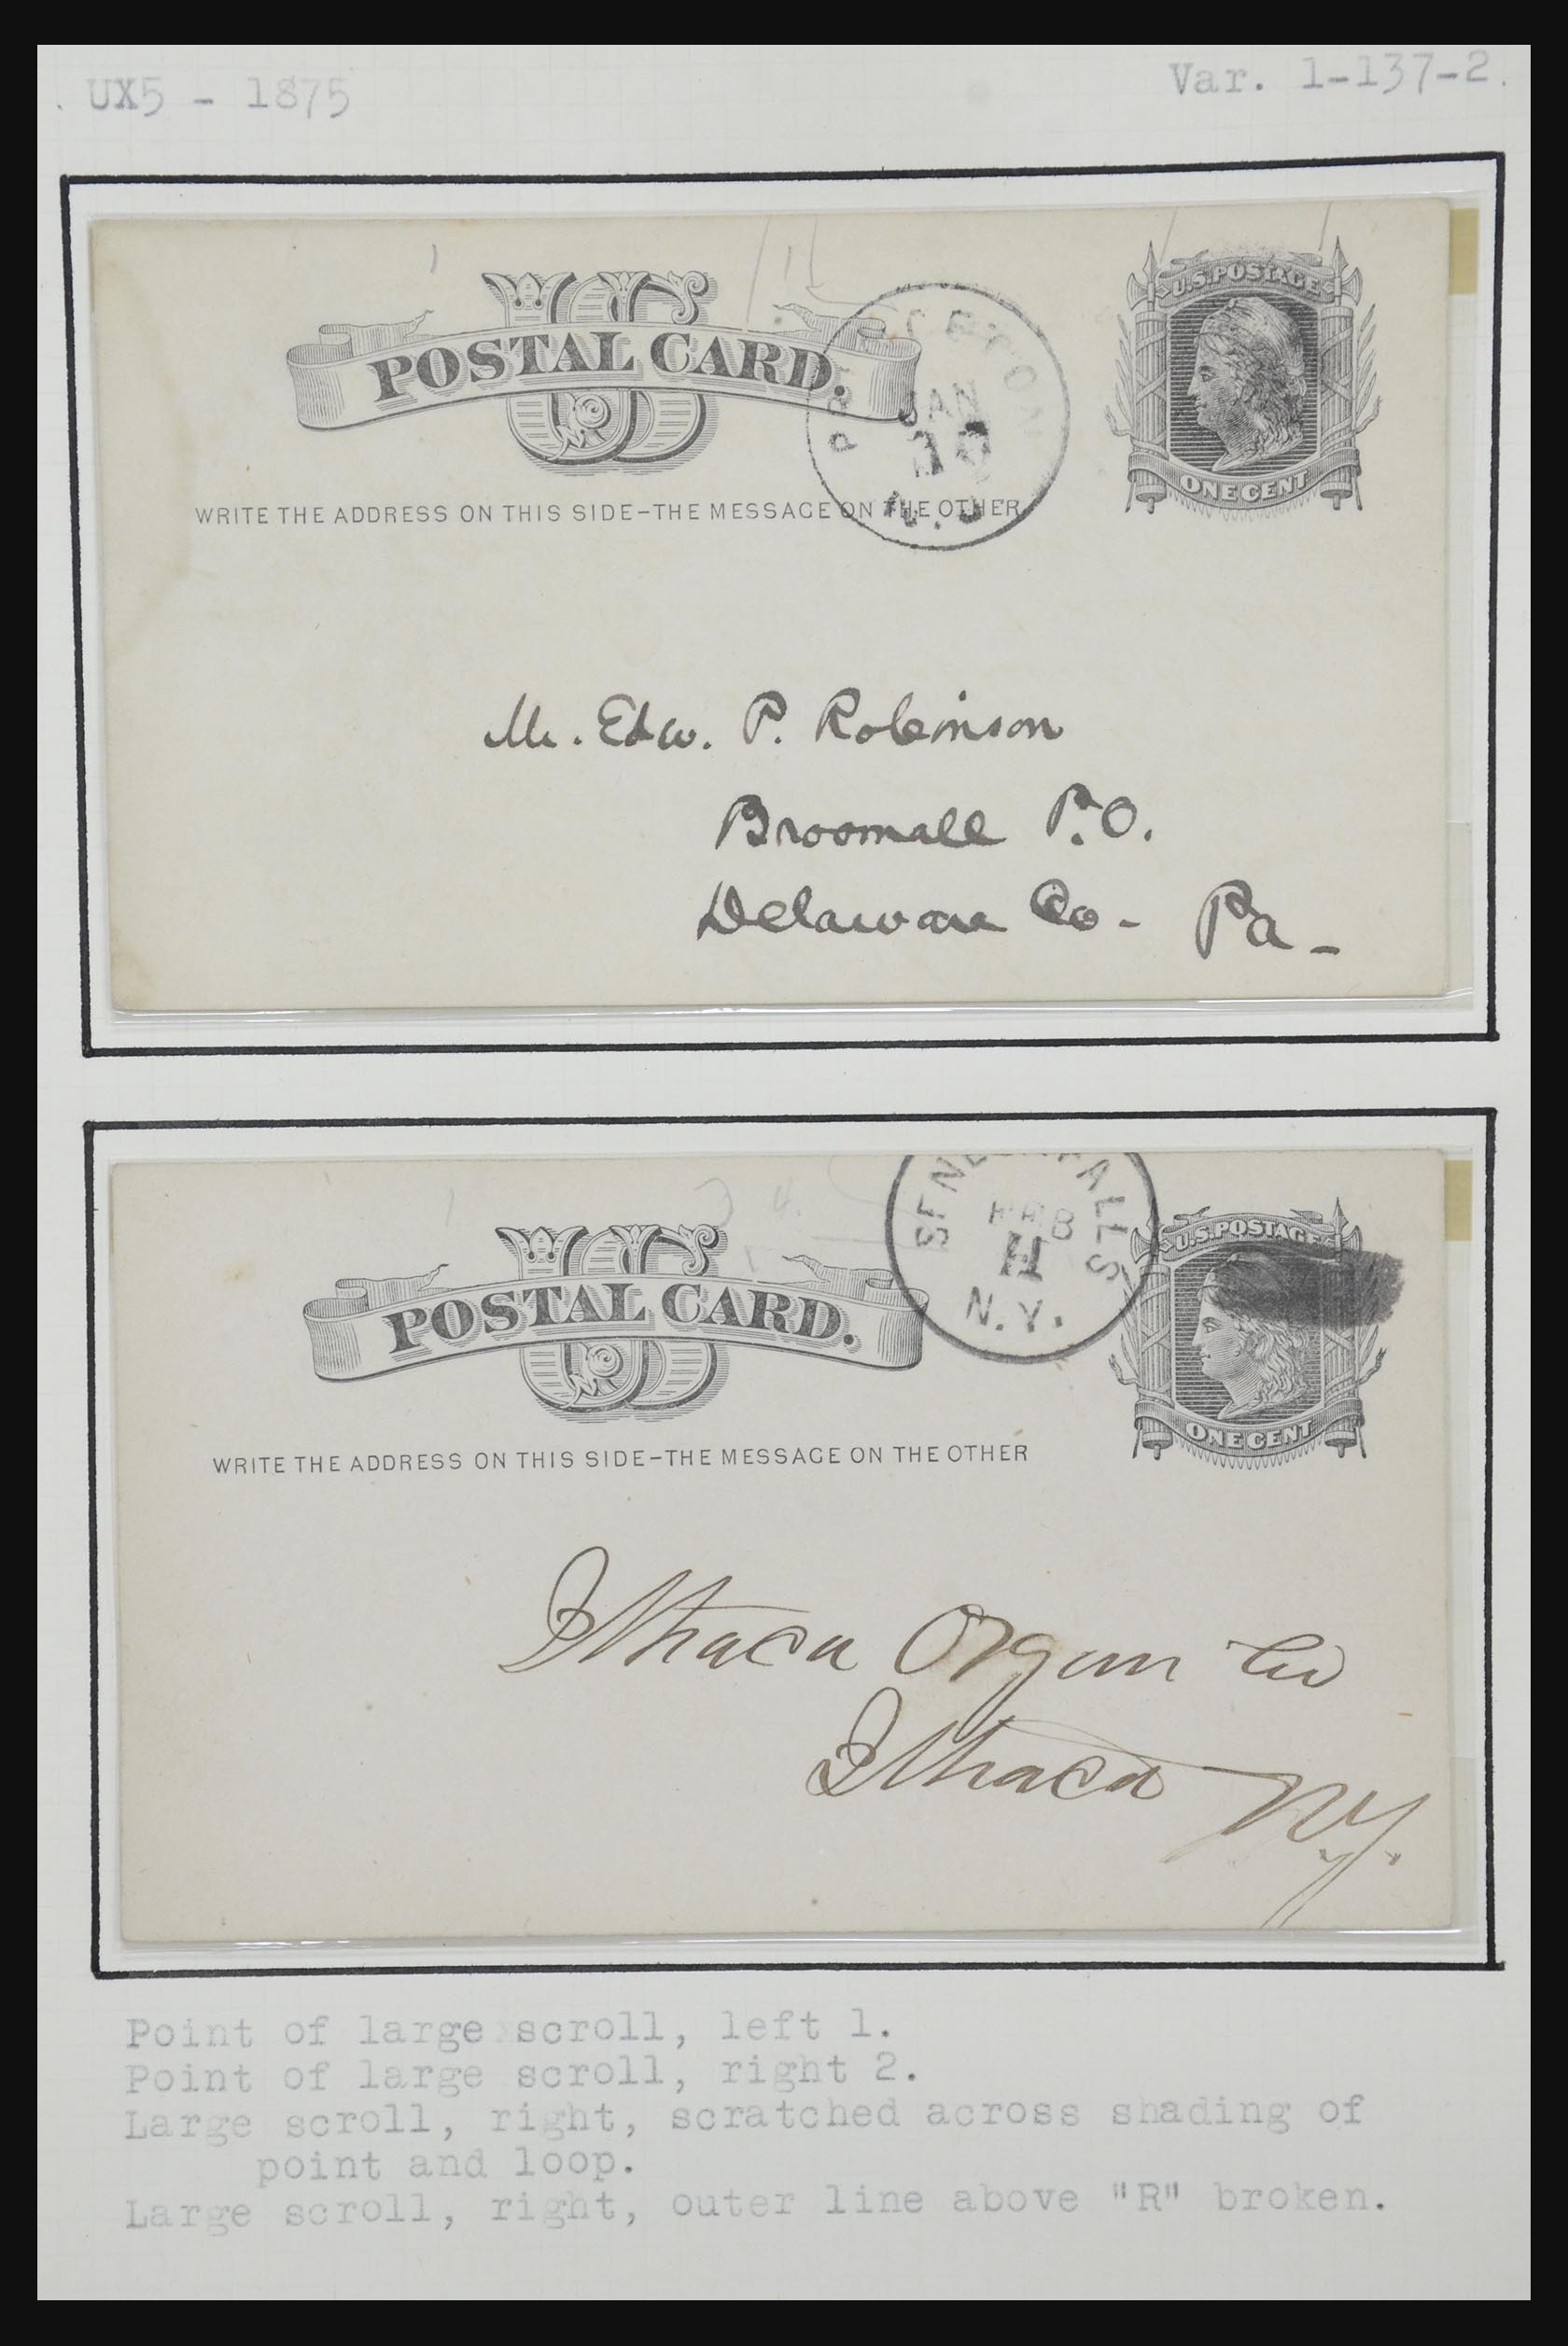 UX5 - 1875
Var. 1-137-2.
U.S. POSTAGE
POSTAL CARD.
US
JAN
ONE CENT
WRITE THE ADDRESS ON THIS SIDE-THE MESSAGE ON THE OTHER
Mr. Edw. P. Robinson
Broomall P.O.
Delaware Co- Pa-
SENECA FALLS
11
N.Y.
U.S. POSTAGE
POSTAL CARD.
US
ONE CENT
WRITE THE ADDRESS ON THIS SIDE-THE MESSAGE ON THE OTHER
Ithaca Organ Co
Ithaca N.Y.
Point of large scroll, left 1.
Point of large scroll, right 2.
Large scroll, right, scratched across shading of
point and loop.
Large scroll, right, outer line above "R" broken.